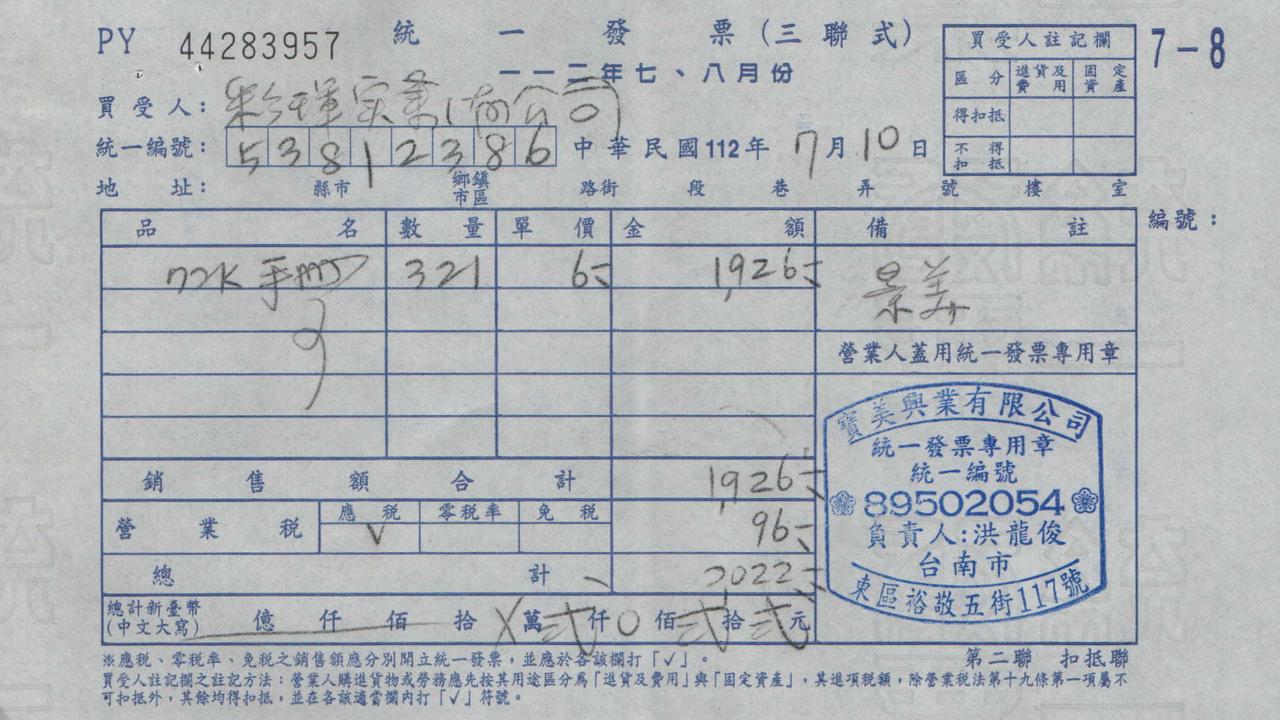 PY 44283957 統一發票(三聯式) 7-8
一一二年七、八月份
買受人註記欄
區分 進貨及費用 固定資產
得扣抵
不得扣抵
買受人: 實業(有)公司
統一編號: 53812386 中華民國112年7月10日
地址: 縣市 鄉鎮市區 路街 段 巷 弄 號 樓 室
品名 數量 單價 金額 備註 編號:
72K 手 321 6 1,926 景美
營業人蓋用統一發票專用章
銷售額合計 1,926
營業稅 應稅 零稅率 免稅 96
V
總計 2,022
總計新臺幣(中文大寫) 億 仟 佰 拾 X 萬 貳 仟 0 佰 貳 拾 貳 元
寶美興業有限公司
統一發票專用章
統一編號
89502054
負責人:洪龍俊
台南市
東區裕敬五街117號
※應稅、零稅率、免稅之銷售額應分別開立統一發票,並應於各該欄打「✓」。 第二聯 扣抵聯
買受人註記欄之註記方法:營業人購進貨物或勞務應先按其用途區分為「進貨及費用」與「固定資產」,其進項稅額,除營業稅法第十九條第一項屬不
可扣抵外,其餘均得扣抵,並在各該適當欄內打「✓」符號。